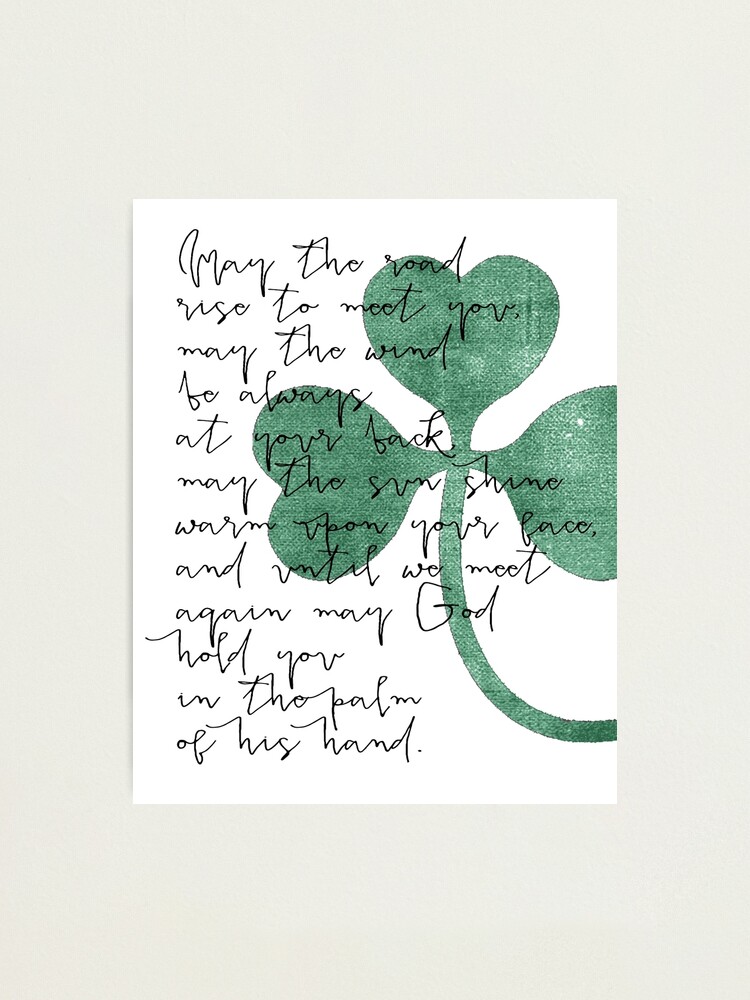 May the road
rise to meet you,
may the wind
be always
at your back
may the sun shine
warm upon your face,
and until we meet
again may God
hold you
in the palm
of his hand.